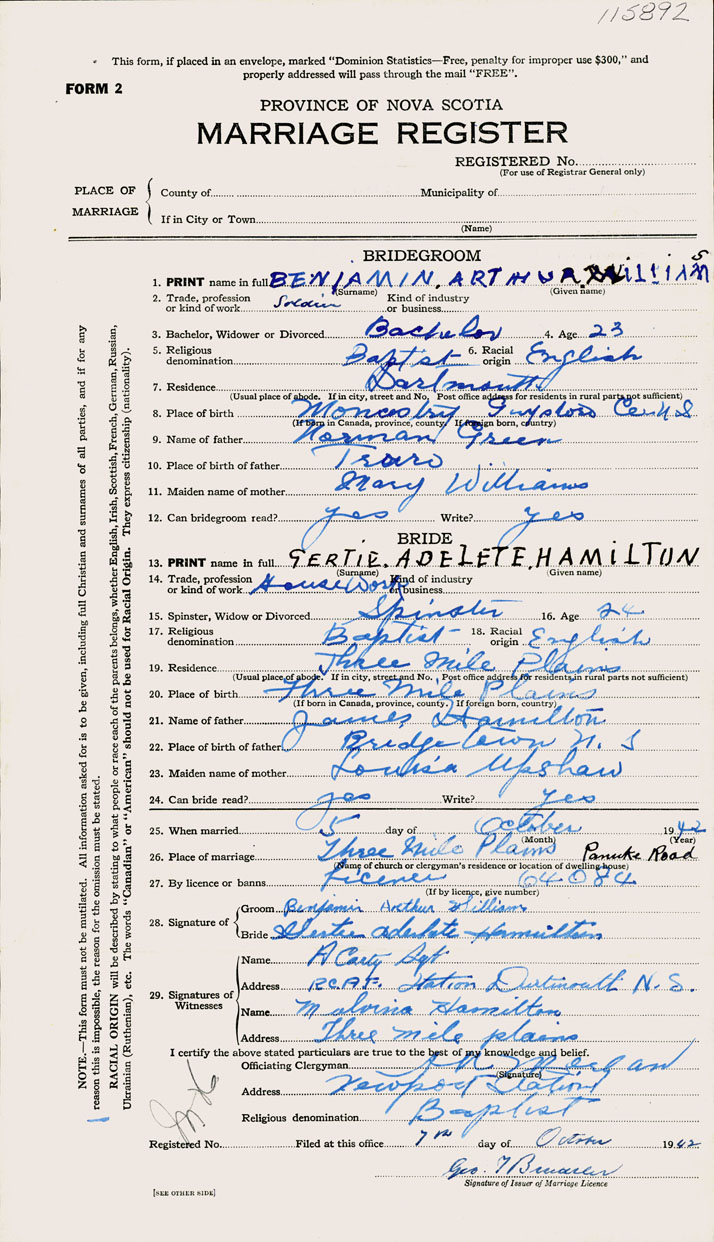 115892
This form, if placed in an envelope, marked "Dominion Statistics—Free, penalty for improper use $300," and
properly addressed will pass through the mail "FREE".
FORM 2
PROVINCE OF NOVA SCOTIA
MARRIAGE REGISTER
REGISTERED No.
(For use of Registrar General only)
PLACE OF MARRIAGE
County of Municipality of
If in City or Town
(Name)
BRIDEGROOM
1. PRINT name in full BENJAMIN, ARTHUR, WilliAMS
(Surname) (Given name)
2. Trade, profession or kind of work Soldier Kind of industry or business
3. Bachelor, Widower or Divorced Bachelor 4. Age 23
5. Religious denomination Baptist 6. Racial origin English
7. Residence Dartmouth
(Usual place of abode. If in city, street and No. Post office address for residents in rural parts not sufficient)
8. Place of birth Guysboro Co. N.S.
(If born in Canada, province, county. If foreign born, country)
9. Name of father Norman Green
10. Place of birth of father Truro
11. Maiden name of mother Mary Williams
12. Can bridegroom read? yes Write? yes
BRIDE
13. PRINT name in full GERTIE, ADELETE, HAMILTON
(Surname) (Given name)
14. Trade, profession or kind of work House Work Kind of industry or business
15. Spinster, Widow or Divorced Spinster 16. Age 24
17. Religious denomination Baptist 18. Racial origin English
19. Residence Three Mile Plains
(Usual place of abode. If in city, street and No. Post office address for residents in rural parts not sufficient)
20. Place of birth Three Mile Plains
(If born in Canada, province, county. If foreign born, country)
21. Name of father James Hamilton
22. Place of birth of father Bridgetown N. S
23. Maiden name of mother Louisa Upshaw
24. Can bride read? yes Write? yes
25. When married 5 day of October 1942
(Month) (Year)
26. Place of marriage Three Mile Plains Panuke Road
(Name of church or clergyman's residence or location of dwelling house)
27. By licence or banns Licence 64084
(If by licence, give number)
28. Signature of
Groom Benjamin Arthur William
Bride Gertie Adelate Hamilton
29. Signatures of Witnesses
Name A Carty Sgt
Address R.C.A.F. Station Dartmouth N. S.
Name Malvina Hamilton
Address Three mile plains
I certify the above stated particulars are true to the best of my knowledge and belief.
Officiating Clergyman
(Signature)
Address Newport Station
Religious denomination Baptist
Registered No. Filed at this office 7th day of October 1942
Geo.
Signature of Issuer of Marriage Licence
[SEE OTHER SIDE]
NOTE.—This form must not be mutilated. All information asked for is to be given, including full Christian and surnames of all parties, and if for any
reason this is impossible, the reason for the omission must be stated.
RACIAL ORIGIN will be described by stating to what people or race each of the parents belongs, whether English, Irish, Scottish, French, German, Russian,
Ukrainian (Ruthenian), etc. The words "Canadian" or "American" should not be used for Racial Origin. They express citizenship (nationality).